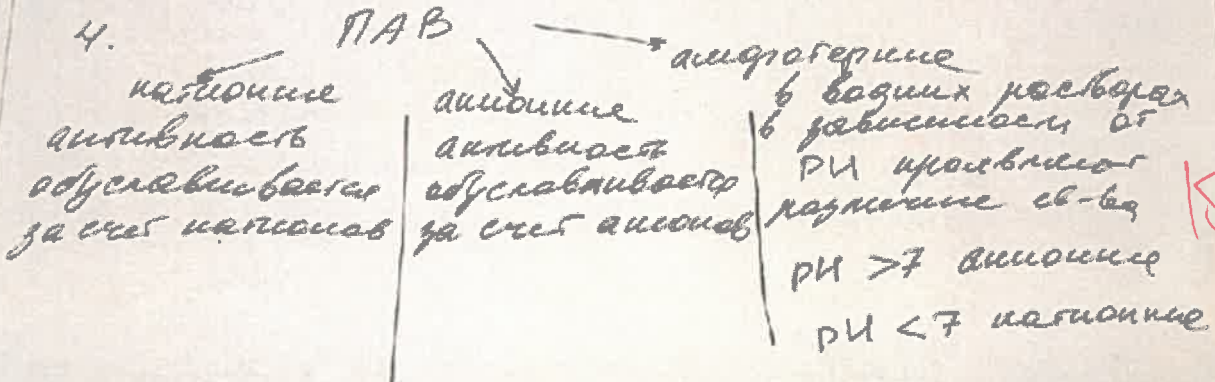 4. ПАВ
катионные
активность
обуславливается
за счет катионов
анионные
активность
обуславливается
за счет анионов
амфотерные
в водных растворах
в зависимости от
pH проявляют
различные св-ва
pH >7 анионные
pH <7 катионные